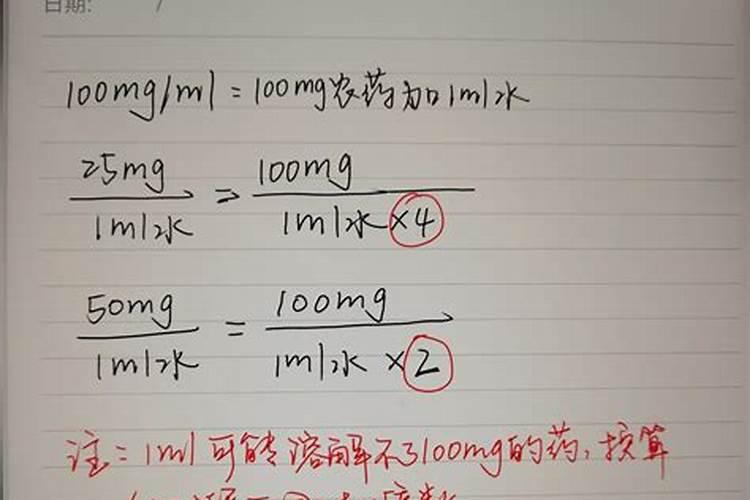 日期: /
100mg/ml = 100mg农药加1ml水
25mg/1ml水 = 100mg/1ml水×4
50mg/1ml水 = 100mg/1ml水×2
注:1ml可能溶解不了100mg的药,换算